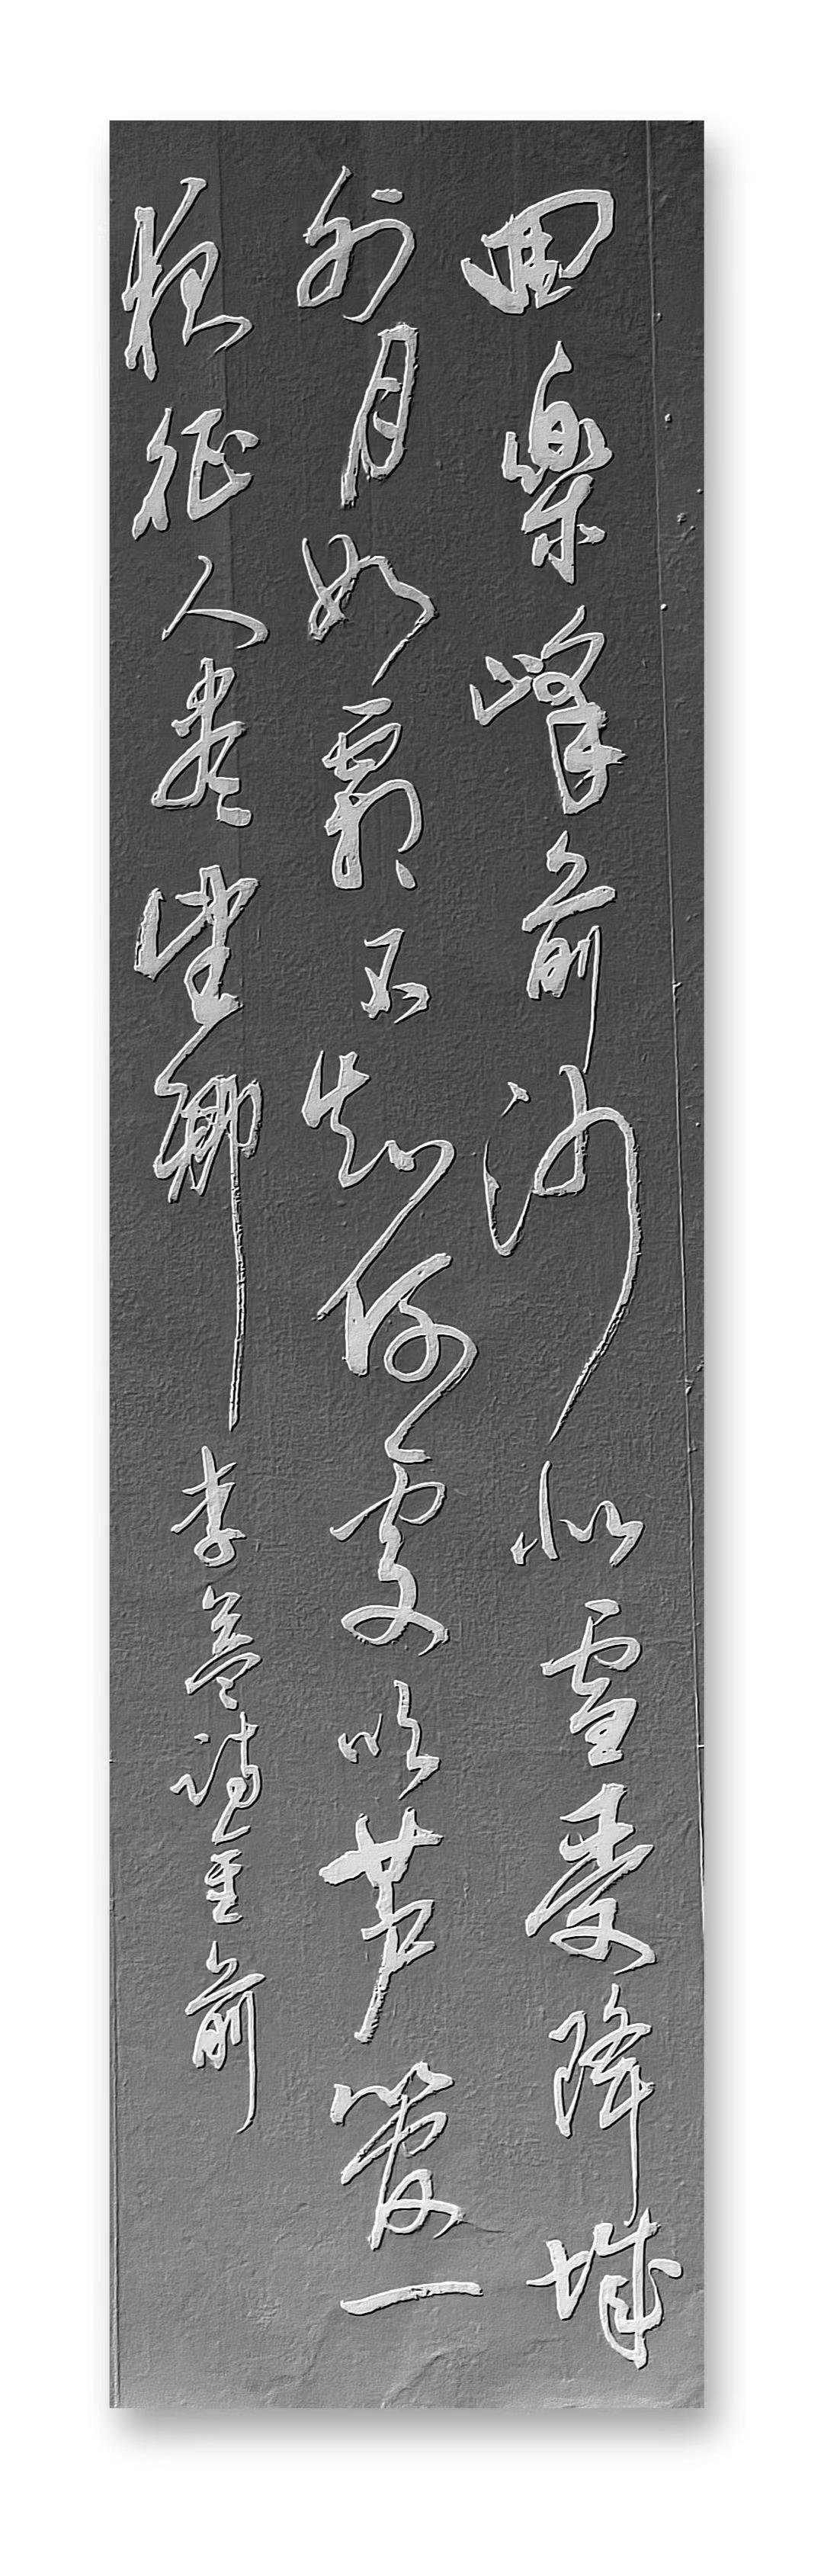 回樂峰前沙似雪受降城
外月如霜不知何處吹芦管一
夜征人盡望鄉 李益詩 前